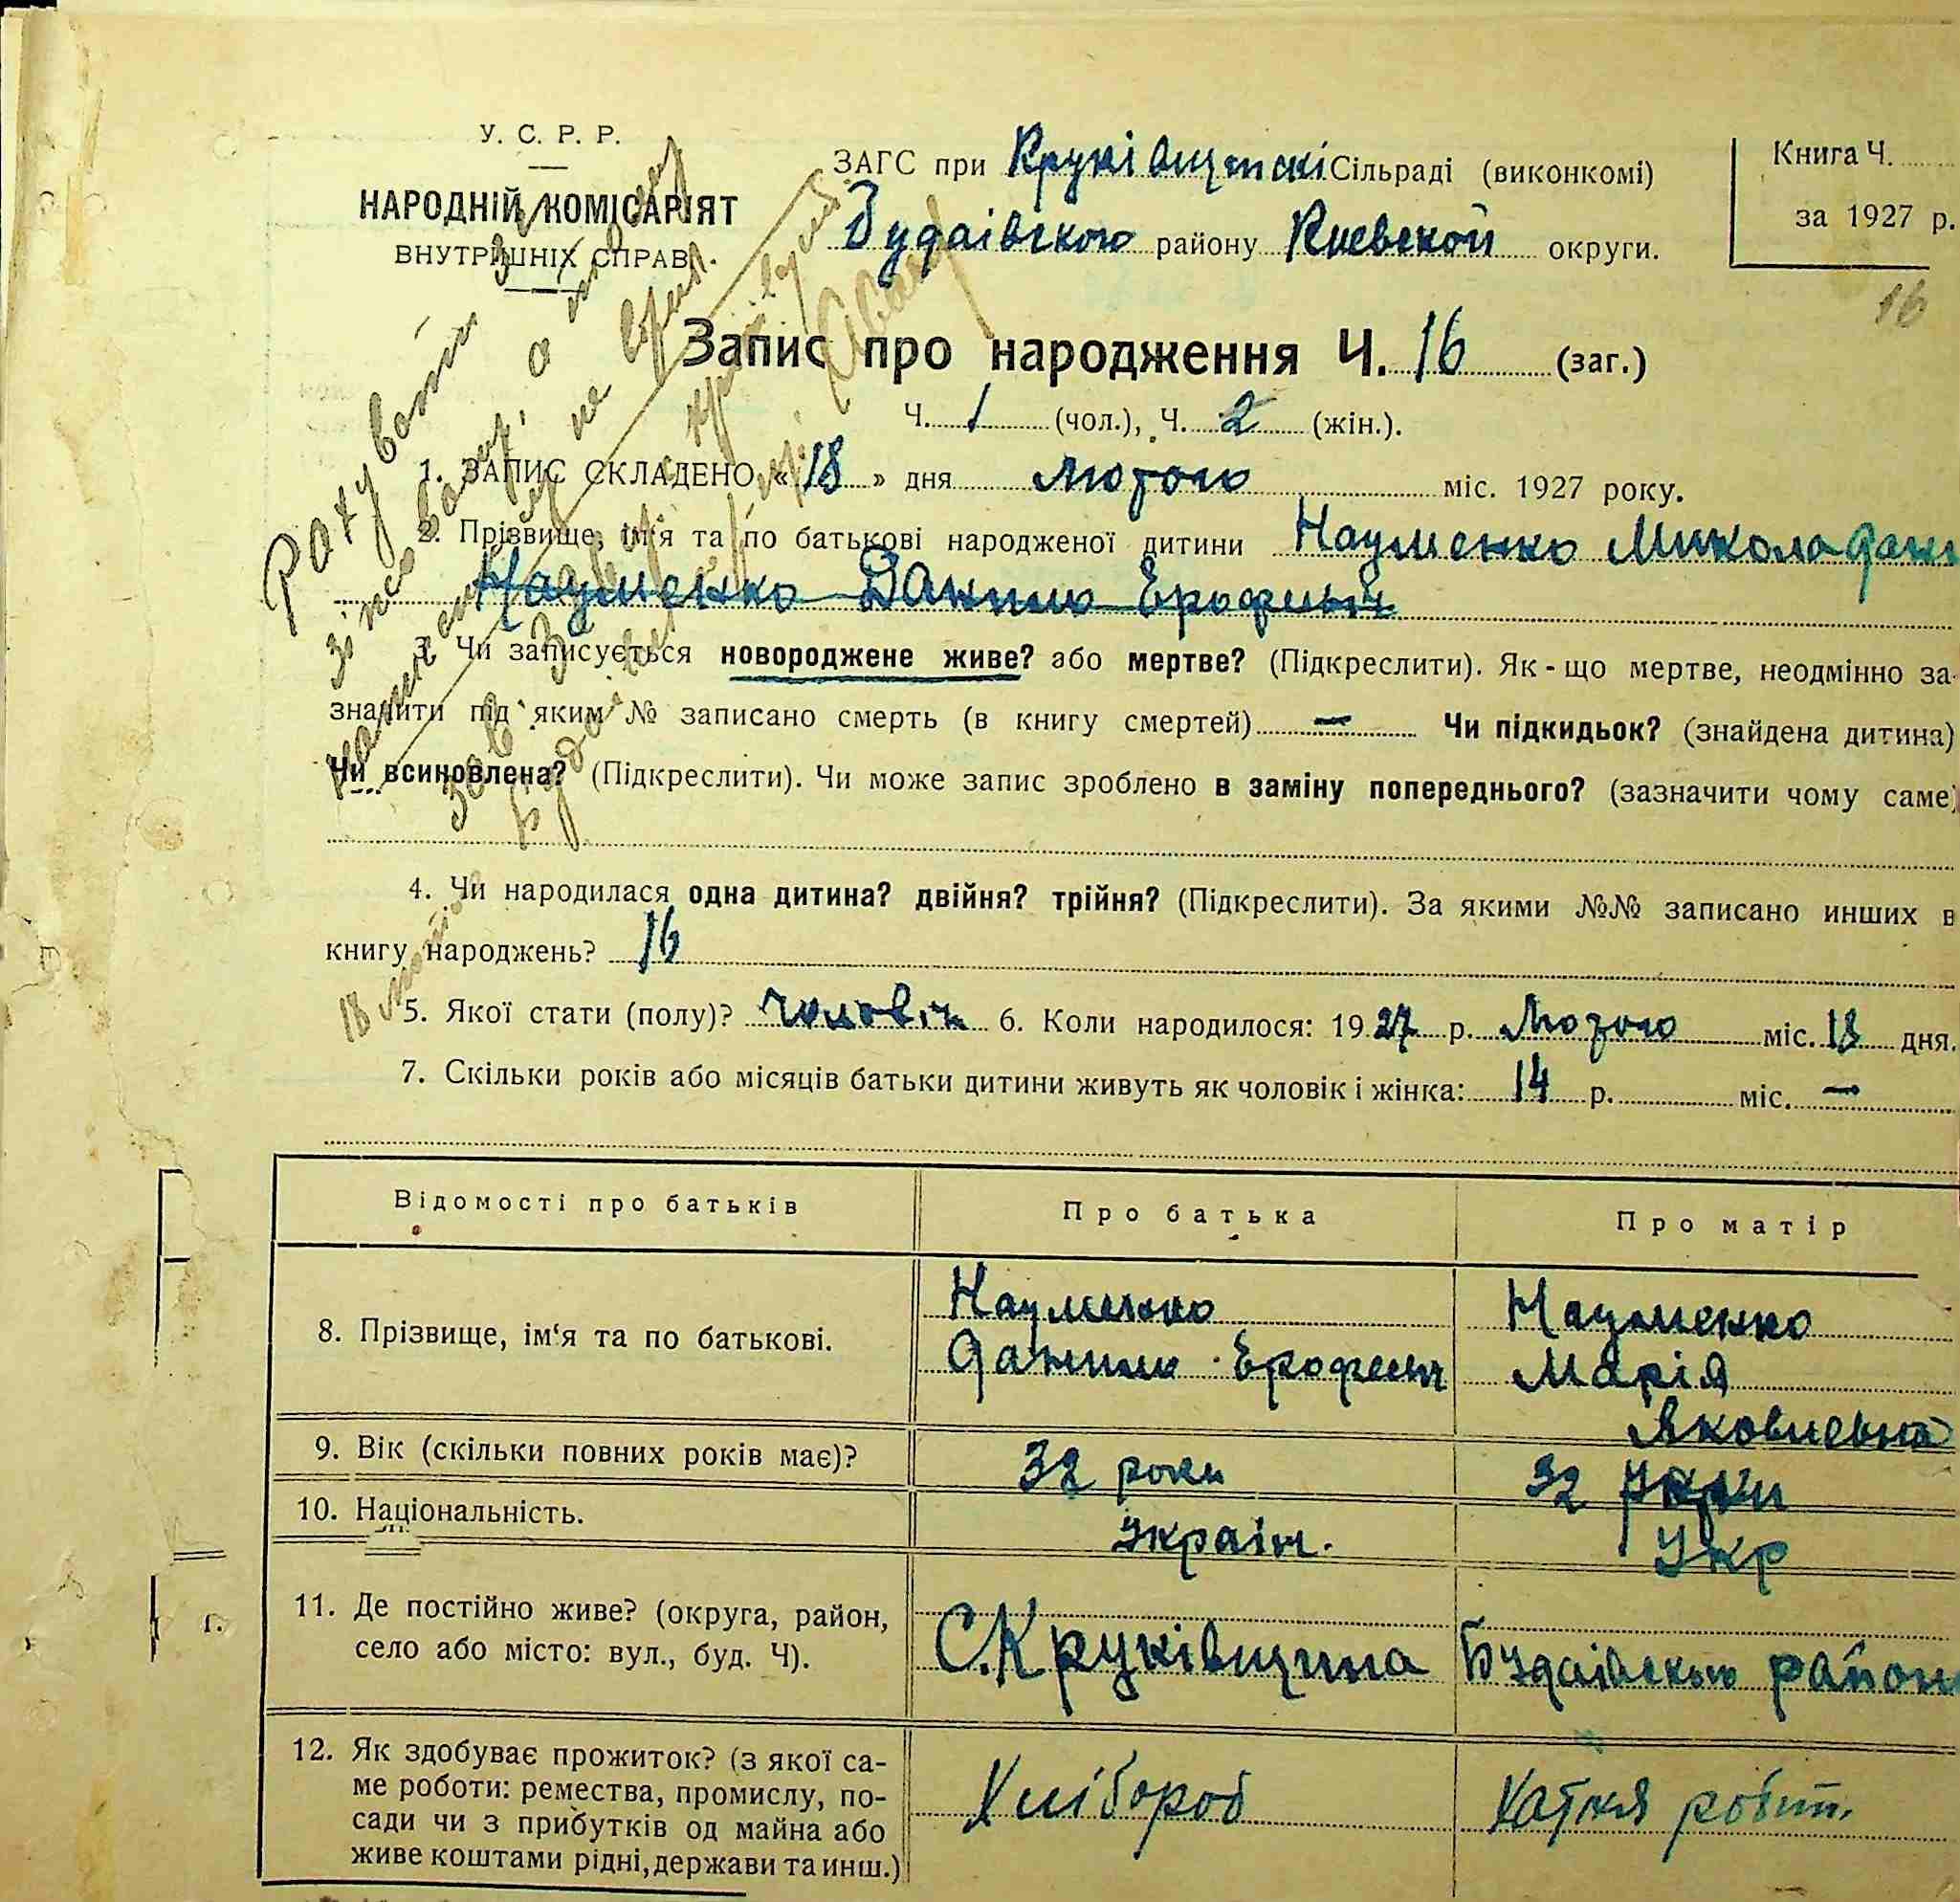 У. С. Р. Р.
НАРОДНІЙ КОМІСАРІЯТ
ВНУТРІШНІХ СПРАВ.
ЗАГС при Круківщинскі Сільраді (виконкомі)
Будаівского району Киевской округи.
Книга Ч.
за 1927 р.
16
Запис про народження Ч. 16 (заг.)
Ч. 1 (чол.), Ч. 2 (жін.).
1. ЗАПИС СКЛАДЕНО « 18 » дня Лютого міс. 1927 року.
2. Прізвище, ім'я та по батькові народженої дитини Науменко Микола Дани
Науменко Данило Ерофеевич
3. Чи записується новороджене живе? або мертве? (Підкреслити). Як-що мертве, неодмінно за-
значити під яким № записано смерть (в книгу смертей) — Чи підкидьок? (знайдена дитина)
Чи всиновлена? (Підкреслити). Чи може запис зроблено в заміну попереднього? (зазначити чому саме)
4. Чи народилася одна дитина? двійня? трійня? (Підкреслити). За якими №№ записано инших в
книгу народжень? 16
5. Якої стати (полу)? Чоловік 6. Коли народилося: 1927 р. Лютого міс. 18 дня.
7. Скільки років або місяців батьки дитини живуть як чоловік і жінка: 14 р. міс. —
Відомості про батьків Про батька Про матір
8. Прізвище, ім'я та по батькові. Науменко Данило Ерофеевич Науменко Марія Яковлевна
9. Вік (скільки повних років має)? 32 роки 32 роки
10. Національність. Украін. Укр
11. Де постійно живе? (округа, район, С. Круківщина Будаівского району
село або місто: вул., буд. Ч).
12. Як здобуває прожиток? (з якої са- Хлібороб Хатня робіт.
ме роботи: ремества, промислу, по-
сади чи з прибутків од майна або
живе коштами рідні, держави та инш.)